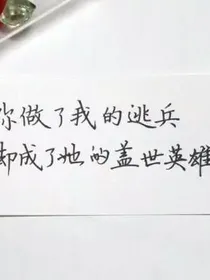 你做了我的逃兵
却成了她的盖世英雄